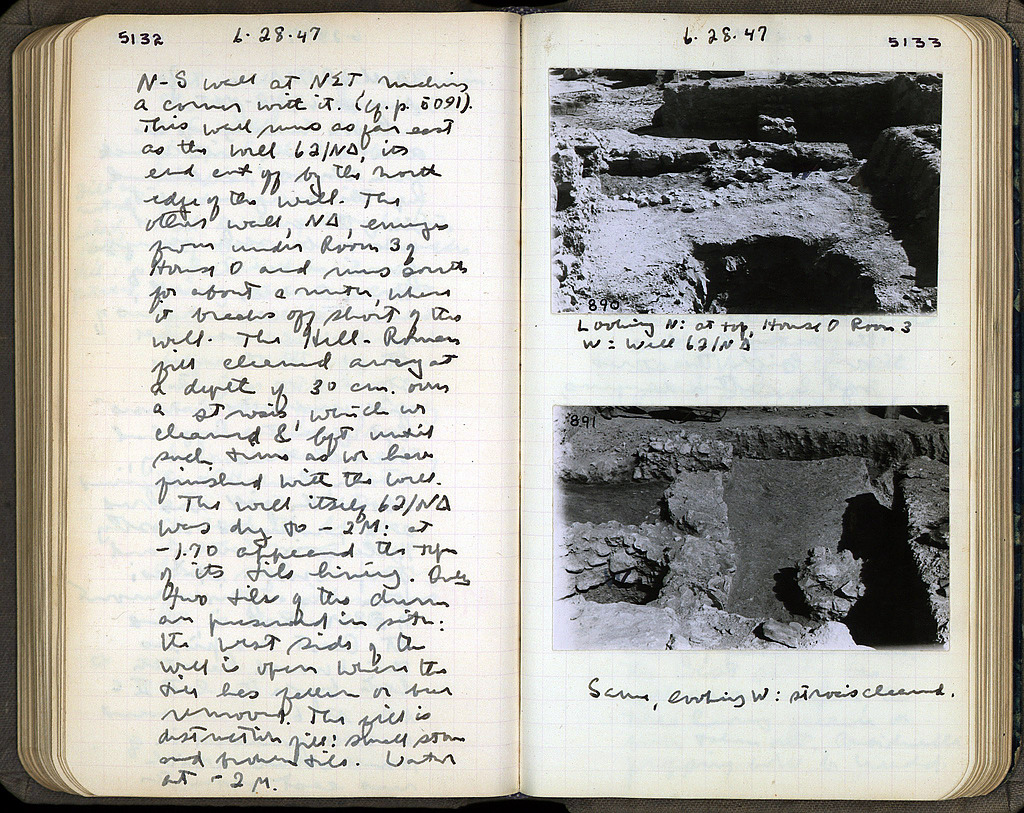 5132
6.28.47
N-S wall at NΣT, making
a corner with it. (cf. p. 5091).
This wall runs as far east
as the well 62/NΔ, its
end cut off by the north
edge of the well. The
other wall, NΔ, emerges
from under Room 3 of
House O and runs south
for about a meter, where
it breaks off short of the
well. The Hell.-Roman
fill cleaned away at
a depth of 30 cm. over
a strosis, which we
cleaned & left until
such time as we have
finished with the well.
The well itself 62/NΔ
was dug to -2M: at
-1.70 appeared the top
of its tile lining. Only
two tiles of the drum
are preserved in situ:
the west side of the
well is open where the
tile has fallen or been
removed. The fill is
destruction fill: small stones
and broken tile. Water
at -2 M.
6.28.47
5133
890
Looking N: at top, House O Room 3
W: Well 62/NΔ
891
Same, looking W: strosis cleaned.